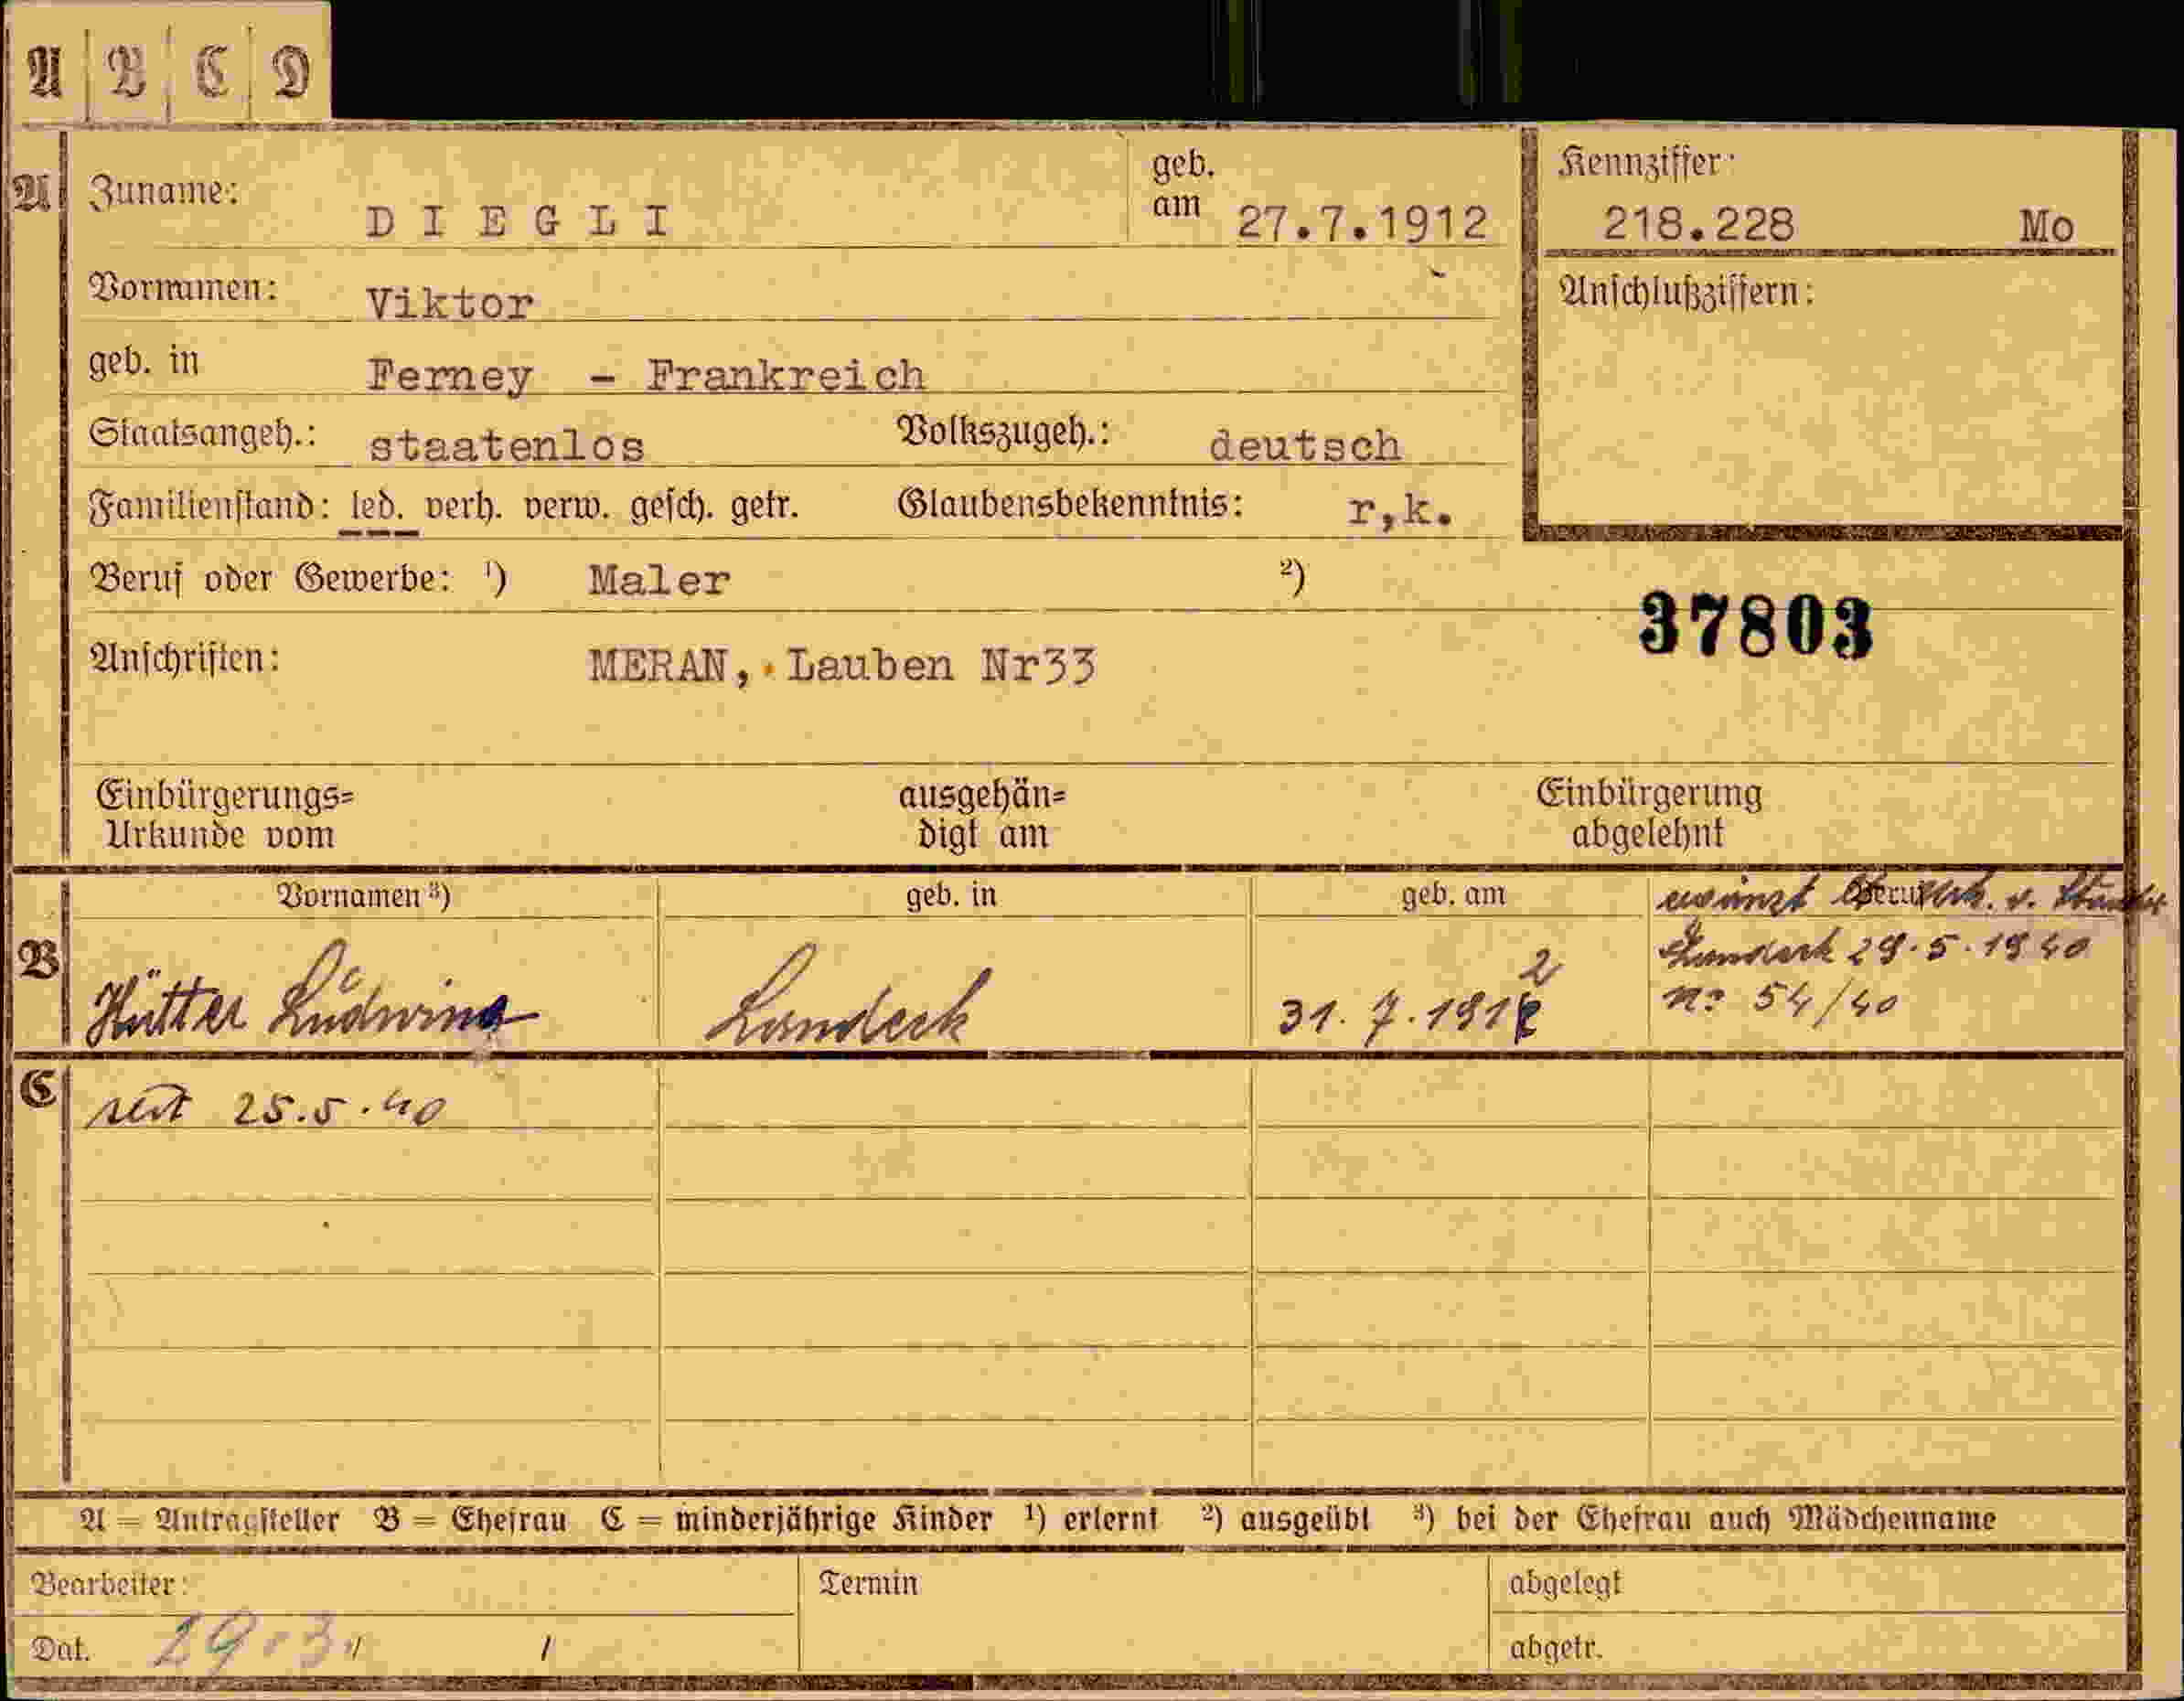 A B C D
A
Zuname: DIEGLI geb. am 27.7.1912
Kennziffer:
218.228 Mo
Vornamen: Viktor
Anschlußziffern:
geb. in Ferney - Frankreich
Staatsangeh.: staatenlos Volkszugeh.: deutsch
Familienstand: led. verh. verw. gesch. getr. Glaubensbekenntnis: r,k.
Beruf oder Gewerbe: 1) Maler 2)
37803
Anschriften: MERAN, Lauben Nr33
Einbürgerungs= Urkunde vom
ausgehän= digt am
Einbürgerung abgelehnt
Vornamen 3) geb. in geb. am Beruf
B
Hütter Ludwina Landeck 31. 7. 1912 2
Landeck 29.5.1940
No 54/40
C
seit 25.5.40
A = Antragsteller B = Ehefrau C = minderjährige Kinder 1) erlernt 2) ausgeübt 3) bei der Ehefrau auch Mädchenname
Bearbeiter: Termin abgelegt
Dat. 29.3. abgetr.